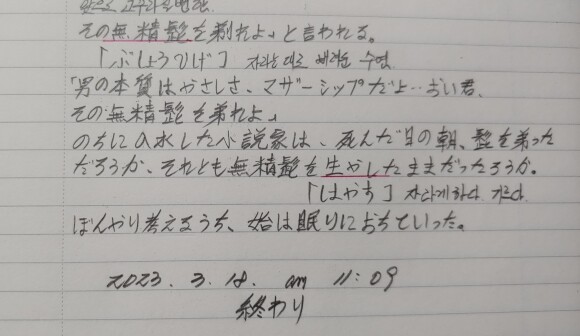 その無精髭を剃れよ」と言われる。
「ぶしょうひげ」 자라는 대로 버려둔 수염
「男の本質はやさしさ、マザーシップだよ‥おい君、
その無精髭を弟れよ」
のちに入水した小説象は、死んだ日の朝、髭を弟った
だろうか、それとも無精髭を生やしたままだったろうか。
「はやす」 자라게 하다. 기르다
ぼんやり考えるうち、始は眠りにおちていった。
2023. 3. 18. am 11:09
終わり